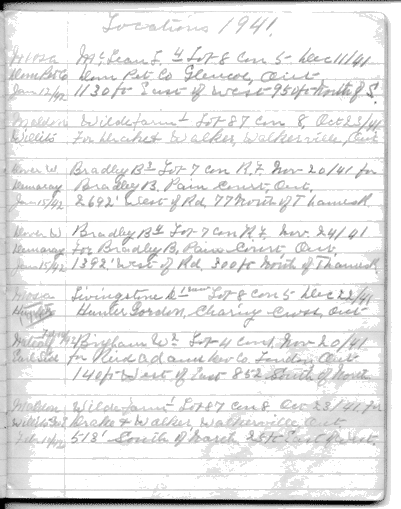 Locations 1941.
Mosa McLean L. 4 Lot 8 Con 5 Dec 11/41
Dom Pet Co Dom Pet Co Glencoe, Ont
Jan 12/42 1130 ft East of West 950 ft North of S.
Maldon Wilde farm 1 Lot 87 Con 8, Oct 23/41
Willits For Drake & Walker, Walkerville, Ont
Dover W. Bradley B 3 Lot 7 Con R.F. Nov 20/41 for
Demaray Bradley B. Pain Court, Ont.
Jan 15/42 2692' West of Rd 77 North of Thames R.
Dover W Bradley B 4 Lot 7 Con R.F. Nov. 24/41
Demaray For Bradley B, Pain Court Ont.
Jan 15/42 1392' West of Rd, 300 ft North of Thames R.
Mosa Livingstone D 1 Lot 8 Con 5 Dec 22/41
Hunter Gordon, Charing Cross, Ont
Metcalf Bingham W 2 Lot 4 Con 1, Nov 20/41
for Reid Adams London Ont
140 ft West of East 852 South of North
Maldon Wilde farm 1 Lot 87 Con 8 Oct 23/41 for
Drake & Walker, Walkerville, Ont
Feb 12/42 513' South of Marsh 25 ft East